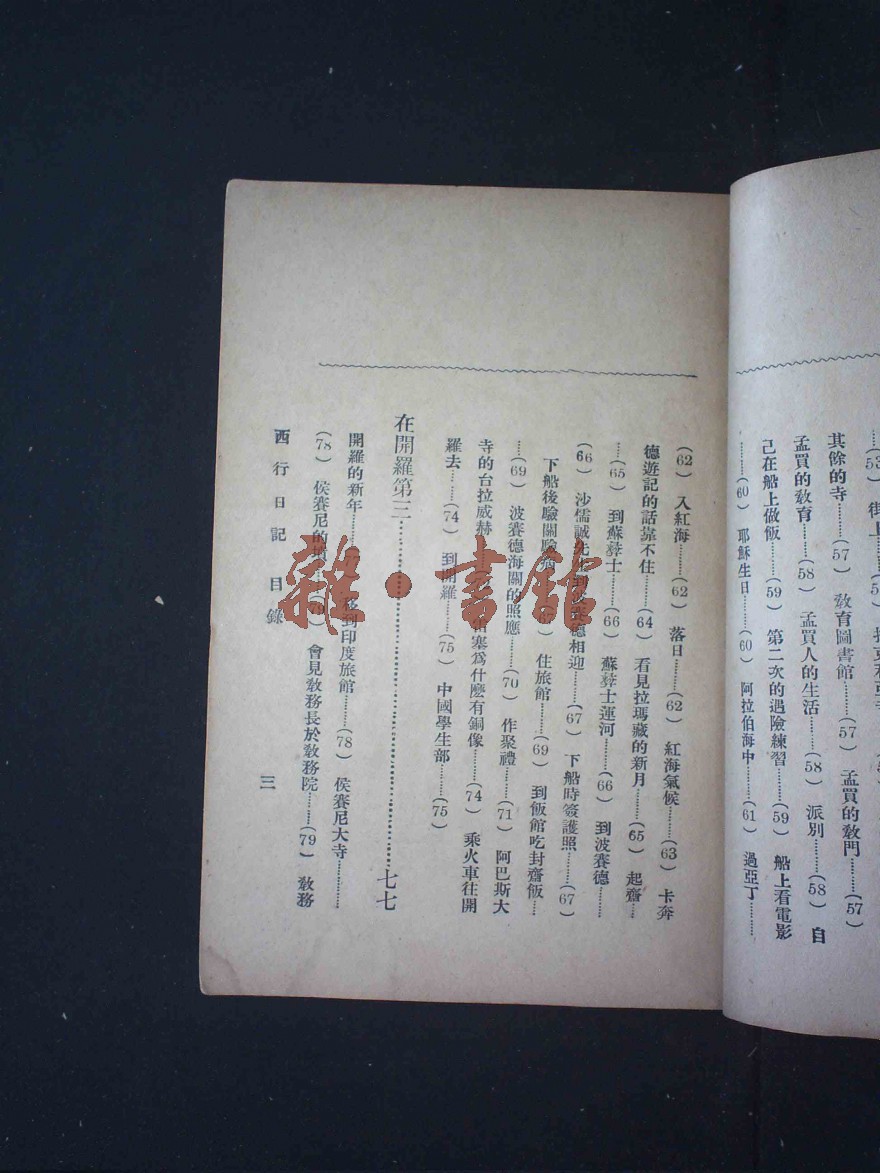 ……(53) 街上
其餘的寺……(57) 敎育圖書館……(57) 孟買的敎門……(57)
孟買的敎育……(58) 孟買人的生活……(58) 派別……(58) 自
己在船上做飯……(59) 第二次的遇險練習……(59) 船上看電影
……(60) 耶穌生日……(60) 阿拉伯海中……(61) 過亞丁……
(62) 入紅海……(62) 落日……(62) 紅海氣候……(63) 卡奔
德遊記的話靠不住……(64) 看見拉瑪藏的新月……(65) 起齋……
……(65) 到蘇彝士……(66) 蘇彝士運河……(66) 到波賽德……
(66) 沙儒誠先生到波賽德相迎……(67) 下船時簽護照……(67)
下船後驗關驗病 住旅館……(69) 到飯館吃封齋飯……
……(69) 波賽德海關的照應……(70) 作聚禮……(71) 阿巴斯大
寺的台拉威赫 雷塞爲什麼有銅像……(74) 乘火車往開
羅去……(74) 到開羅……(75) 中國學生部……(75)
在開羅第三……七七
開羅的新年…… 移到印度旅館……(78) 侯賽尼大寺……
(78) 侯賽尼的墳 會見敎務長於敎務院……(79) 敎務
西行日記 目錄 三
雜·書館